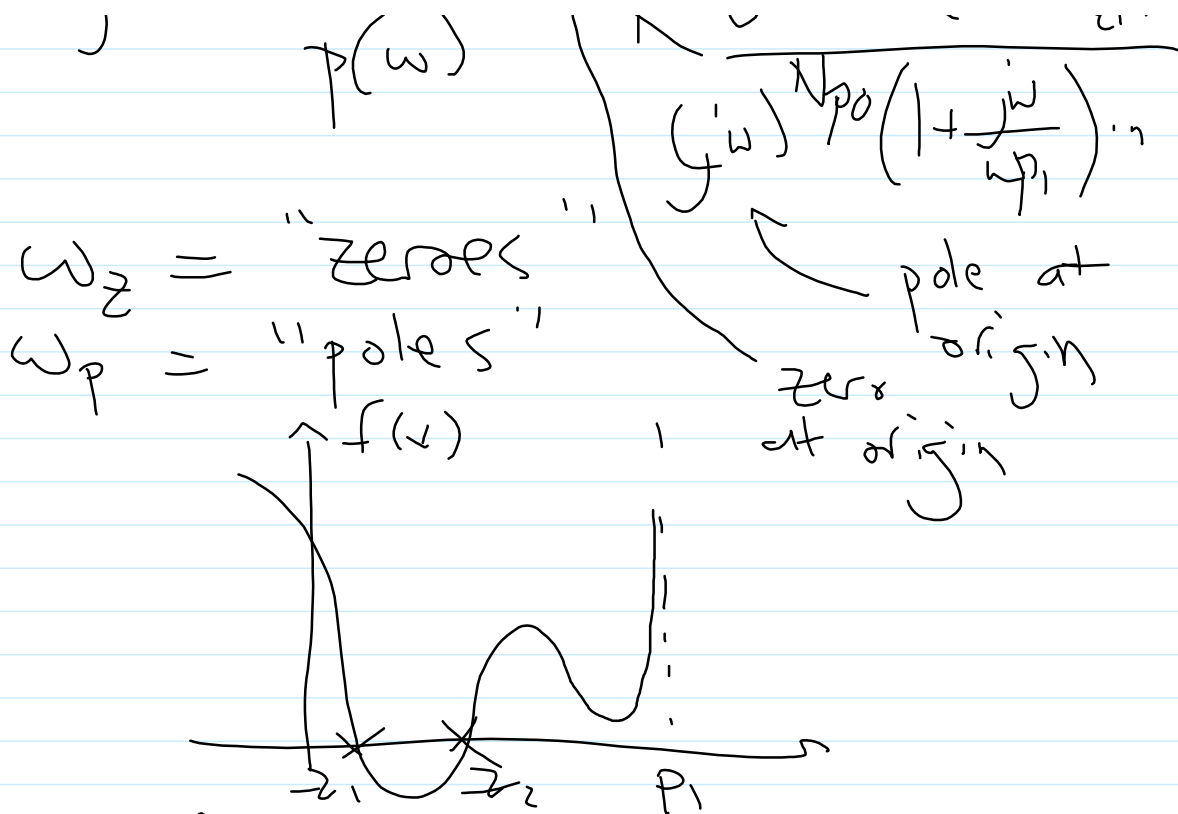 p(ω)
(jω)^Npo (1 + jω/ωp₁) ..
ω_z = "zeroes"
ω_p = "poles"
pole at
origin
zero
at origin
f(x)
z₁ z₂ p₁